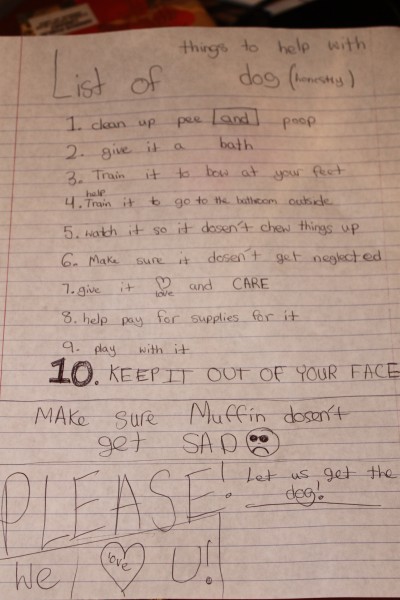 things to help with
List of dog (honestly)
1. clean up pee and poop
2. give it a bath
3. Train it to bow at your feet
help
4. Train it to go to the bathroom outside
5. watch it so it dosen't chew things up
6. Make sure it dosen't get neglected
7. give it love and CARE
8. help pay for supplies for it
9. play with it
10. KEEP IT OUT OF YOUR FACE
MAKe sure Muffin dosen't
get SAD
PLEASE! Let us get the
dog!
We love U!!